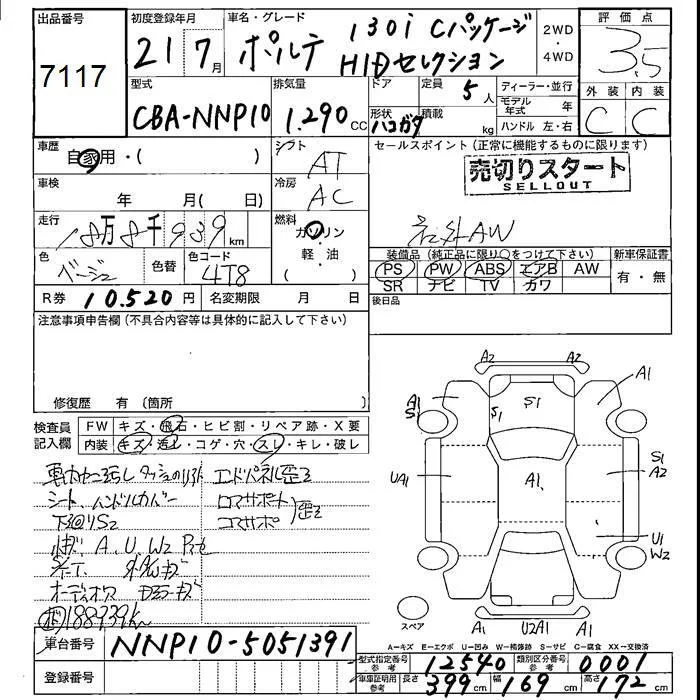 出品番号
7117
初度登録年月
21 7月
車名・グレード
ポルテ 130i Cパッケージ
HIDセレクション
2WD
・
4WD
評価点
3.5
外装 内装
C C
型式
CBA-NNP10
排気量
1.290 CC
ドア
形状
ハコガタ
定員
5人
積載
kg
ディーラー・並行
モデル年式 年
ハンドル 左・右
車歴
自家用・( )
シフト
AT
車検
年 月( 日)
冷房
AC
走行
18万8千939km
燃料
ガソリン
・
軽・油
色
ベージュ
色替
色コード
4T8
R券 10.520円
名変期限 月 日
セールスポイント (正常に機能するものに限ります)
売切りスタート
SELLOUT
社外AW
装備品 (純正品に限り○をつけて下さい)
PS PW ABS エアB AW
SR ナビ TV カワ
新車保証書
有・無
後日品
注意事項申告欄 (不具合内容等は具体的に記入して下さい)
修復歴 有 (箇所 )
検査員
記入欄
FW キズ・飛石・ヒビ割・リペア跡・X要
内装 キズ・汚し・コゲ・穴・スレ・キレ・破レ
シート、ハンドルカバー
エドパネル歪ミ
下回りS2
コアサポート
A、U、W2
188939km
車台番号 NNP10-5051391
登録番号
A2 A2
A1
S1
S1
S1
A1
UA1
A1
S1
A2
U1
W2
スペア
A1 U2A1 A1
A=キズ E=エクボ U=凹み W=補修跡 S=サビ C=腐食 XX=交換済
型式指定番号
参考
12540
類別区分番号
参考
0001
車庫証明用
参考
長さ 399cm 幅 169cm 高さ 172cm